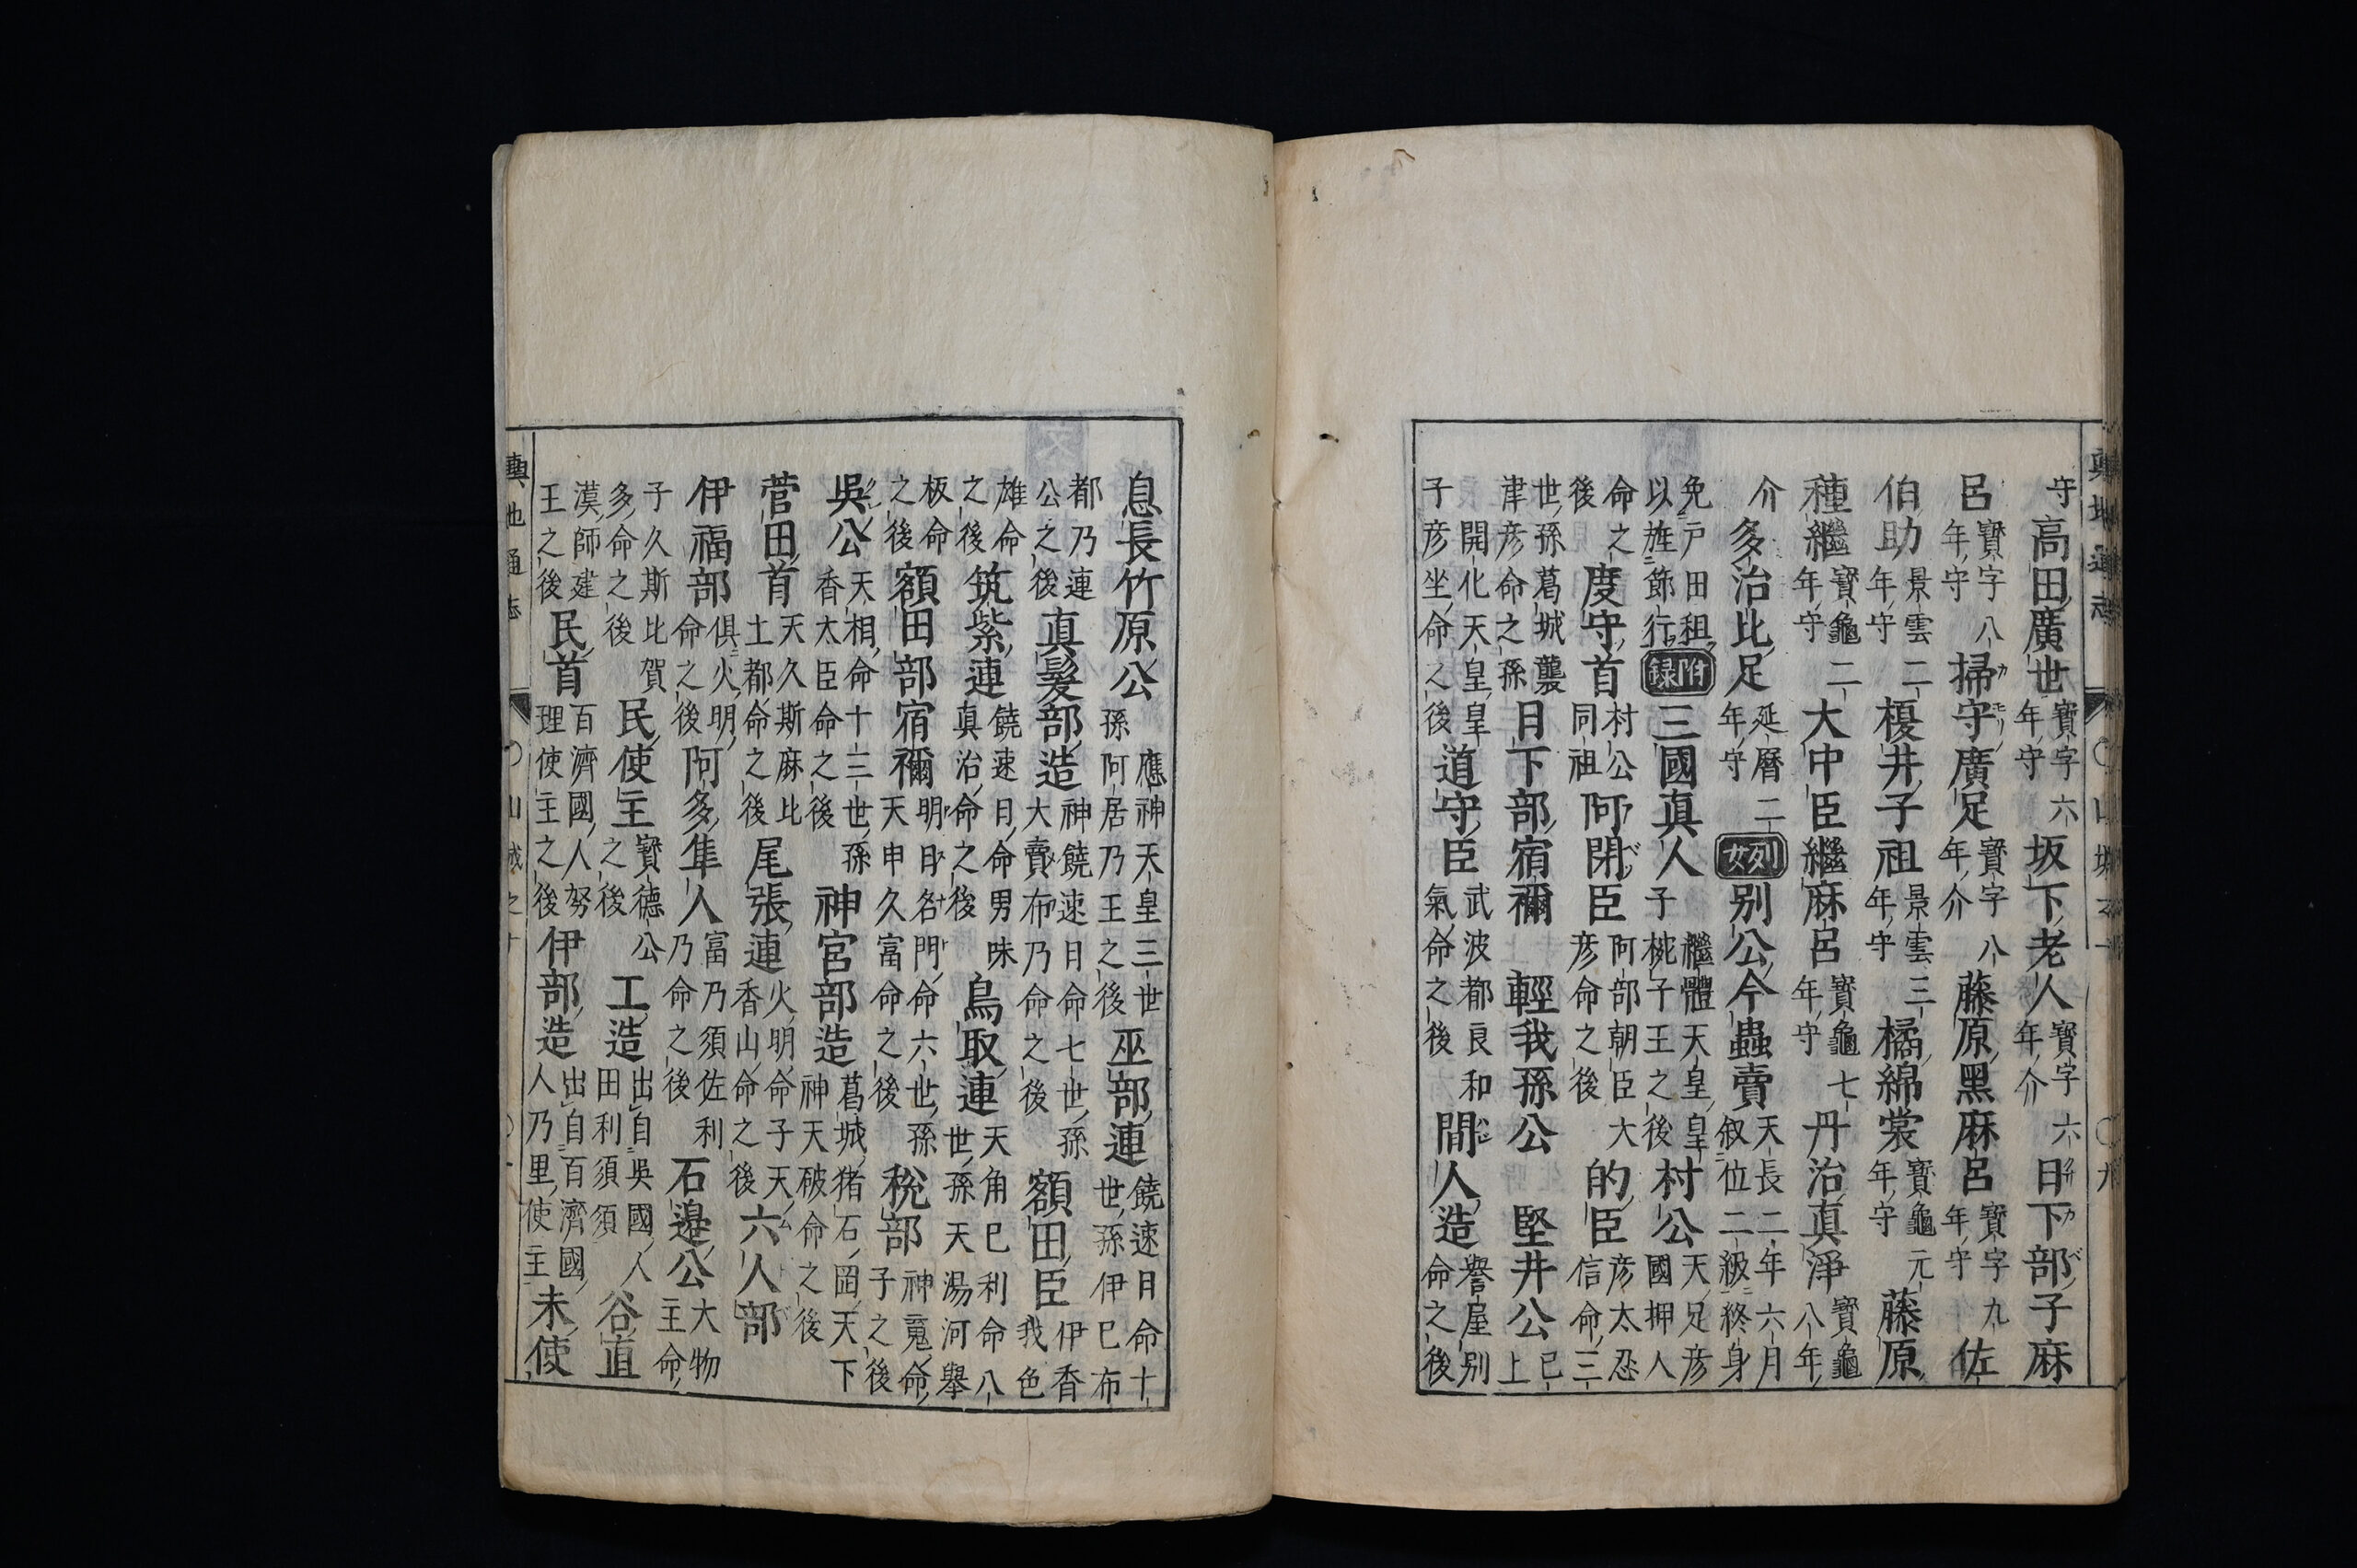 守高田廣世寳字六年守坂下老人寳字六年介日下部子麻
呂寳字八年守掃守廣足寳字八年介藤原黑麻呂寳字九年守佐
伯助景雲二年守榎井子祖景雲三年守橘綿裳寳龜元年守藤原
種繼寳龜二年守大中臣繼麻呂寳龜七年守丹治真淨寳龜八年
介多治比足延曆二年守列女别公今蟲賣天長二年六月叙位二級終身
免戸田租以旌節行附録三國真人繼體天皇皇子椀子王之後村公天足彦國押人
命之後度守首村公同祖阿閉臣阿部朝臣大彦命之後的臣彦太忍信命三
世孫葛城襲津彦命之孫日下部宿禰輕我孫公堅井公已上
開化天皇皇子彦坐命之後道守臣武波都良和氣命之後間人造譽屋别命之後
息長竹原公應神天皇三世孫阿居乃王之後巫部連饒速日命十世孫伊巳布
都乃連公之後真髪部造神饒速日命七世孫大賣布乃命之後額田臣伊香我色
雄命之後筑紫連饒速日命男味真治命之後鳥取連天角巳利命八世孫天湯河擧
板命之後額田部宿禰明日名門命六世孫天申久富命之後稅部神䰟命子之後
吳公天相命十三世孫香太臣命之後神宮部造葛城猪石岡天下神天破命之後
菅田首天久斯麻比土都命之後尾張連火明命子天香山命之後六人部
伊福部俱火明命之後阿多隼人富乃須佐利乃命之後石邉公大物主命
子久斯比賀多命之後民使主寳德公之後工造出自吳國人田利須須谷直
漢師建王之後民首百濟國人努理使主之後伊部造出自百濟國人乃里使主末使